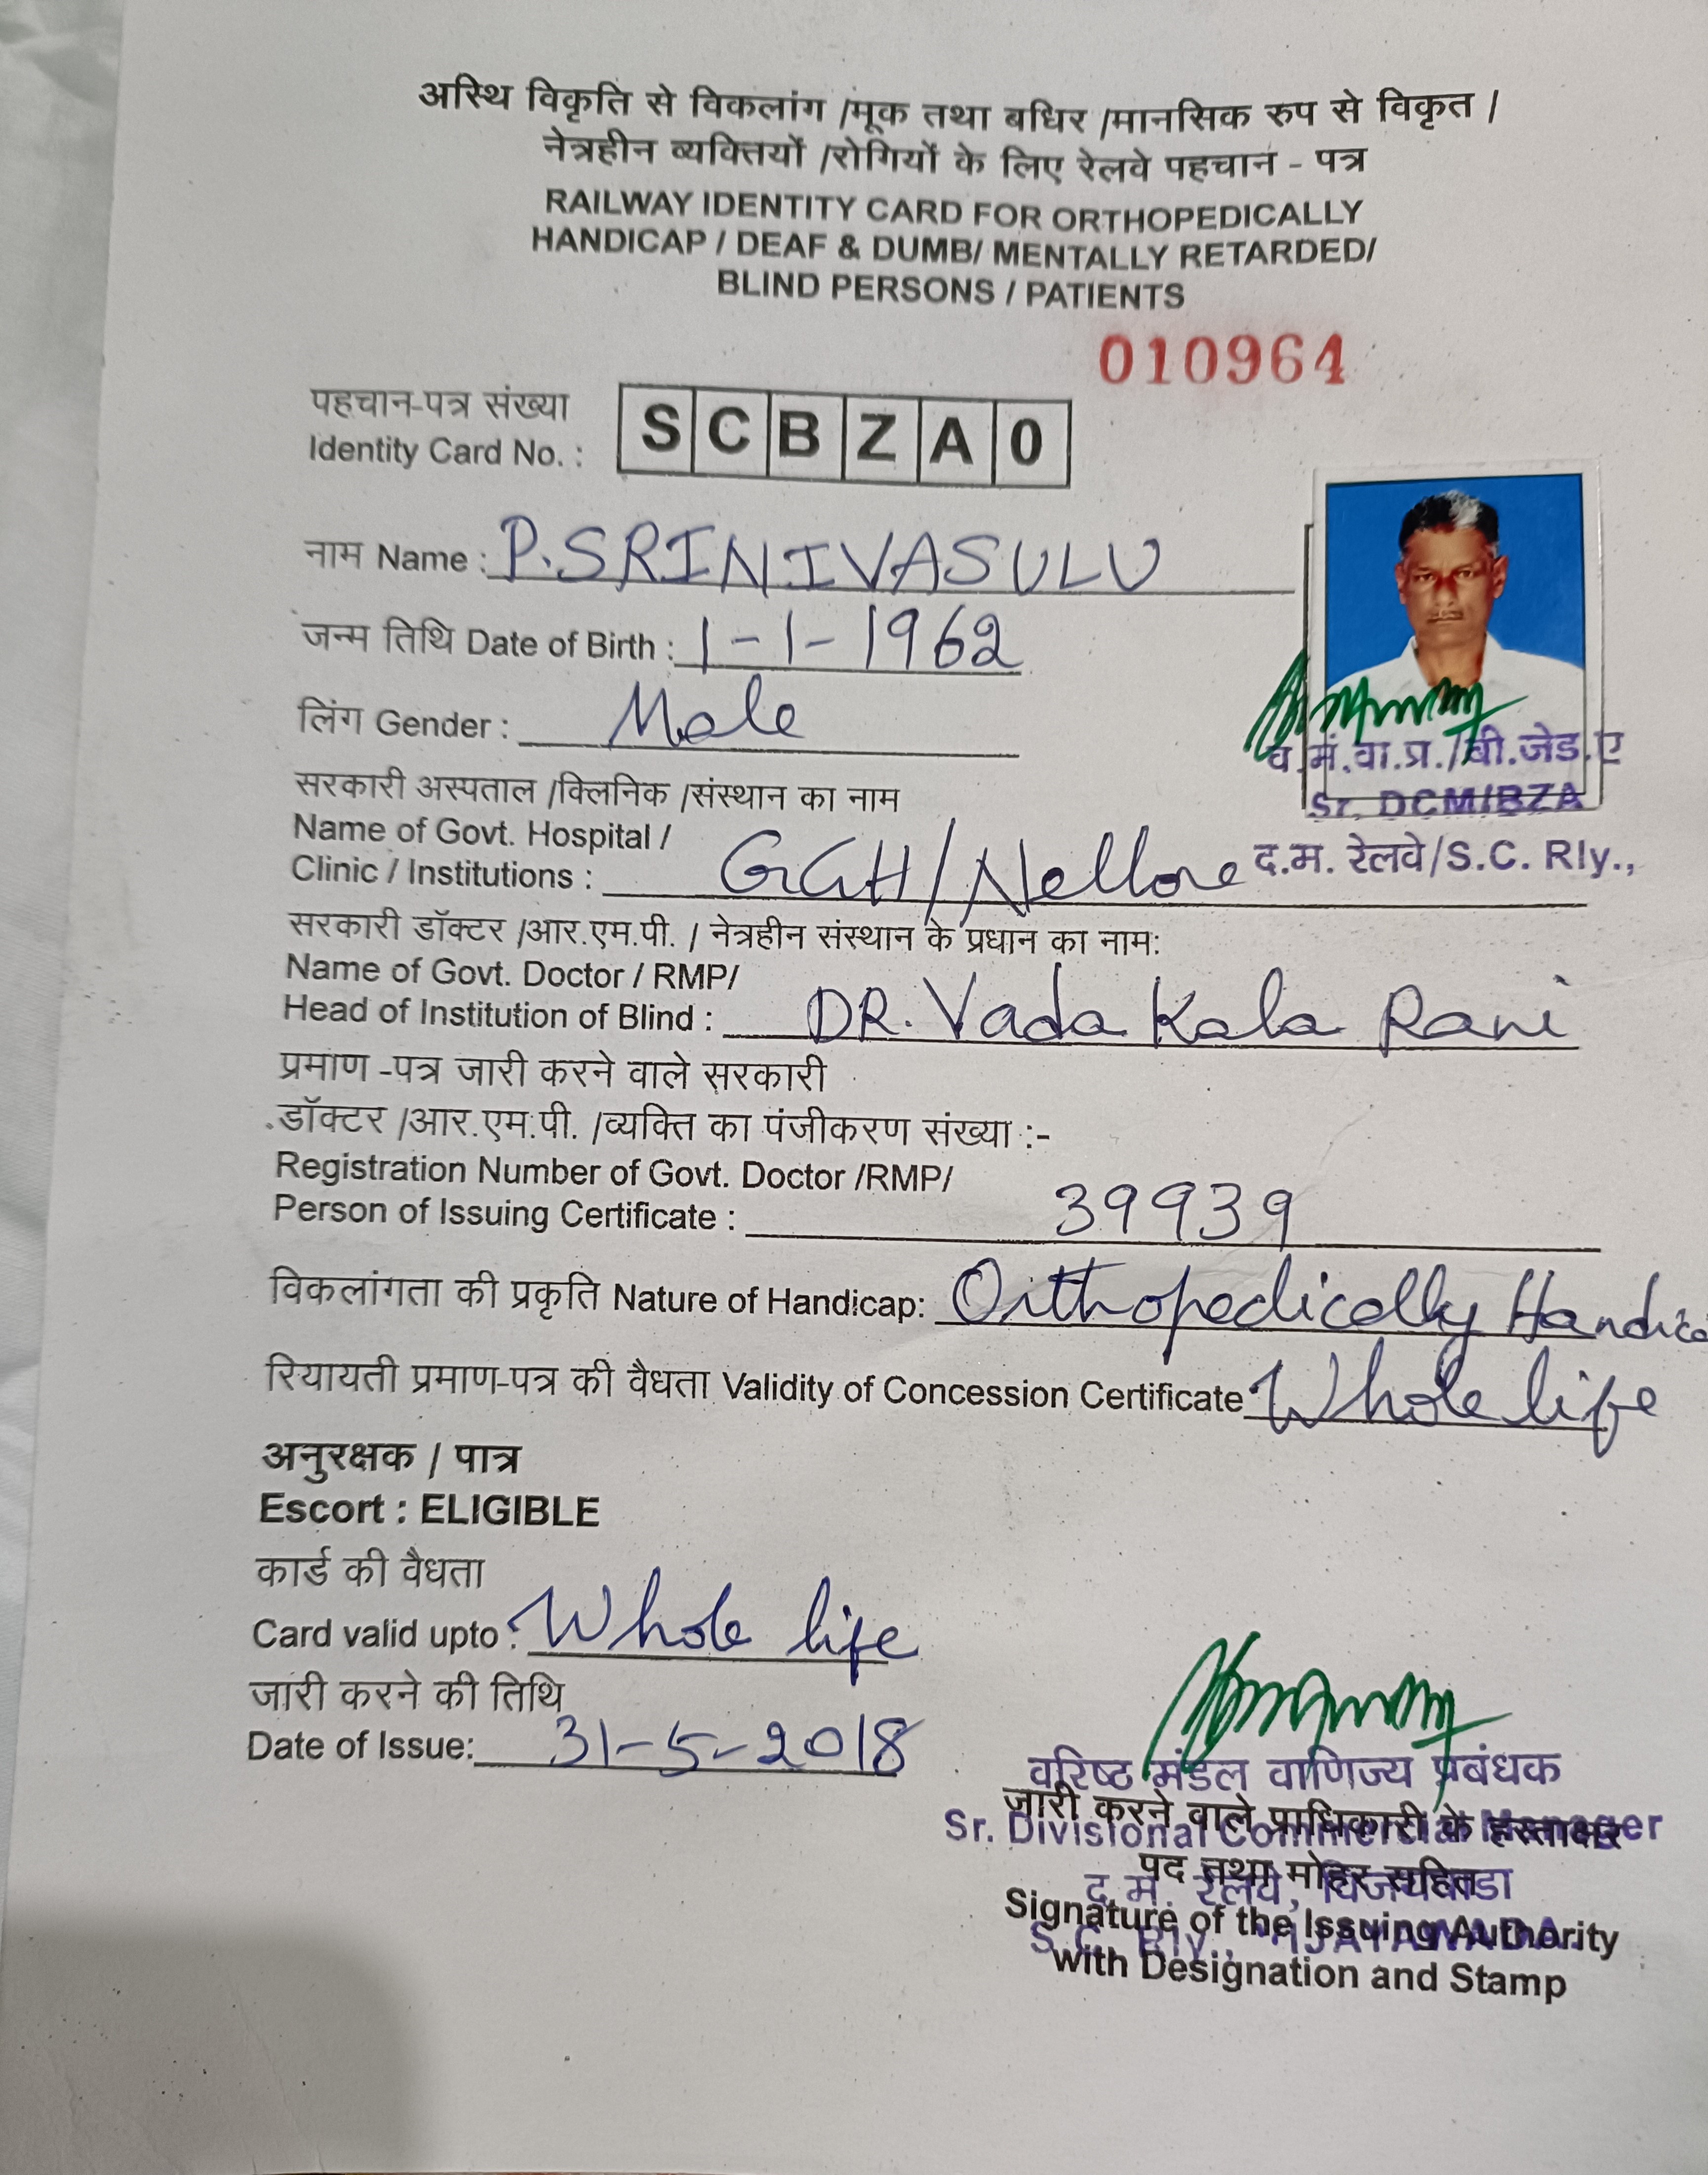 अस्थि विकृति से विकलांग /मूक तथा बधिर /मानसिक रुप से विकृत /
नेत्रहीन व्यक्तियों /रोगियों के लिए रेलवे पहचान - पत्र
RAILWAY IDENTITY CARD FOR ORTHOPEDICALLY
HANDICAP / DEAF & DUMB/ MENTALLY RETARDED/
BLIND PERSONS / PATIENTS
010964
पहचान-पत्र संख्या
Identity Card No. : SCBZA0
नाम Name : P.SRINIVASULU
जन्म तिथि Date of Birth : 1-1-1962
लिंग Gender : Male
व.मं.वा.प्र./बी.जेड.ए
Sr. DCM/BZA
द.म. रेलवे/S.C. Rly.,
सरकारी अस्पताल /क्लिनिक /संस्थान का नाम
Name of Govt. Hospital /
Clinic / Institutions : GGH/Nellore
सरकारी डॉक्टर /आर.एम.पी. / नेत्रहीन संस्थान के प्रधान का नाम:
Name of Govt. Doctor / RMP/
Head of Institution of Blind : DR. Vada Kala Rani
प्रमाण -पत्र जारी करने वाले सरकारी
डॉक्टर /आर.एम.पी. /व्यक्ति का पंजीकरण संख्या :-
Registration Number of Govt. Doctor /RMP/
Person of Issuing Certificate : 39939
विकलांगता की प्रकृति Nature of Handicap: Orthopedically Handica
रियायती प्रमाण-पत्र की वैधता Validity of Concession Certificate: Whole life
अनुरक्षक / पात्र
Escort : ELIGIBLE
कार्ड की वैधता
Card valid upto : Whole life
जारी करने की तिथि
Date of Issue: 31-5-2018
वरिष्ठ मंडल वाणिज्य प्रबंधक
जारी करने वाले प्राधिकारी के हस्ताक्षर
Sr. Divisional Commercial Manager
पद तथा मोहर सहित
द.म. रेलवे, विजयवाडा
Signature of the Issuing Authority
S.C. Rly., VIJAYAWADA.
with Designation and Stamp